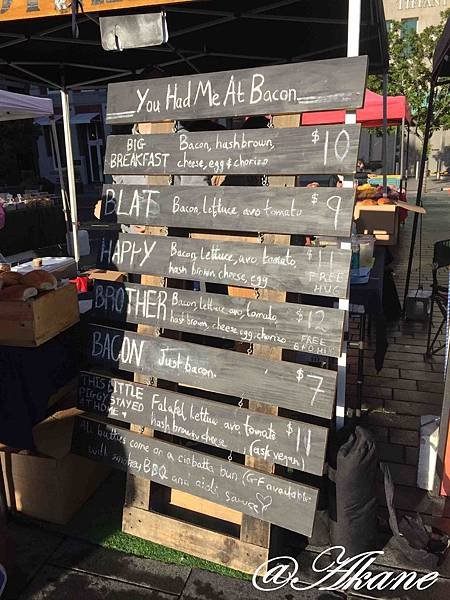 TIFFANY
You Had Me At Bacon
BIG BREAKFAST Bacon, hashbrown, $10
cheese, egg & chorizo
BLAT Bacon, lettuce, avo tomato $9
HAPPY Bacon, lettuce, avo, tomato, $11
hash brown, cheese, egg FREE HUG
BROTHER Bacon, lettuce, avo, tomato $12
hash brown, cheese, egg, chorizo FREE
BACON Just bacon. $7
THIS LITTLE PIGGY STAYED AT HOME Falafel, lettuce avo, tomato $11
hash brown cheese (ask vegan)
All butties come on a ciabatta bun (GF available)
with smokey BBQ and aioli sauce
@Akane